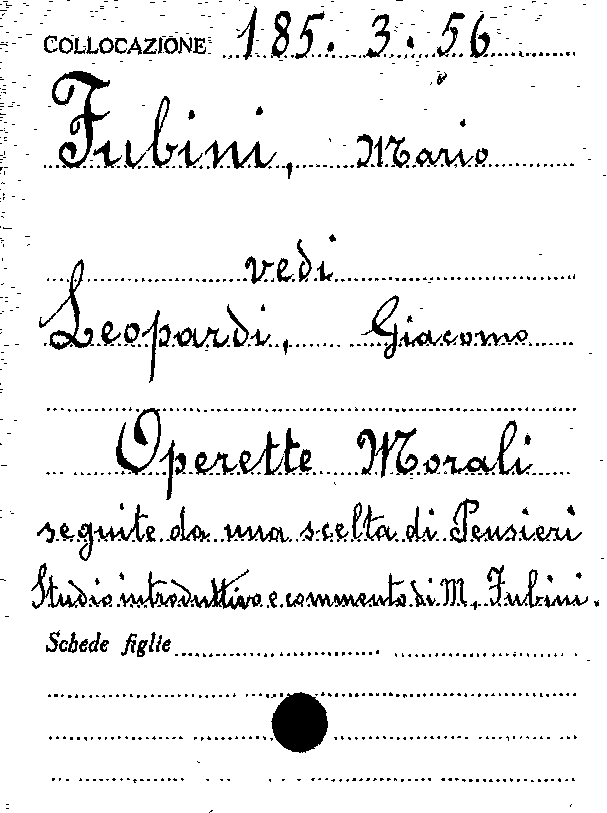 COLLOCAZIONE 185. 3. 56
Fubini, Mario
vedi
Leopardi, Giacomo
Operette Morali
seguite da una scelta di Pensieri
Studio introduttivo e commento di M. Fubini.
Schede figlie